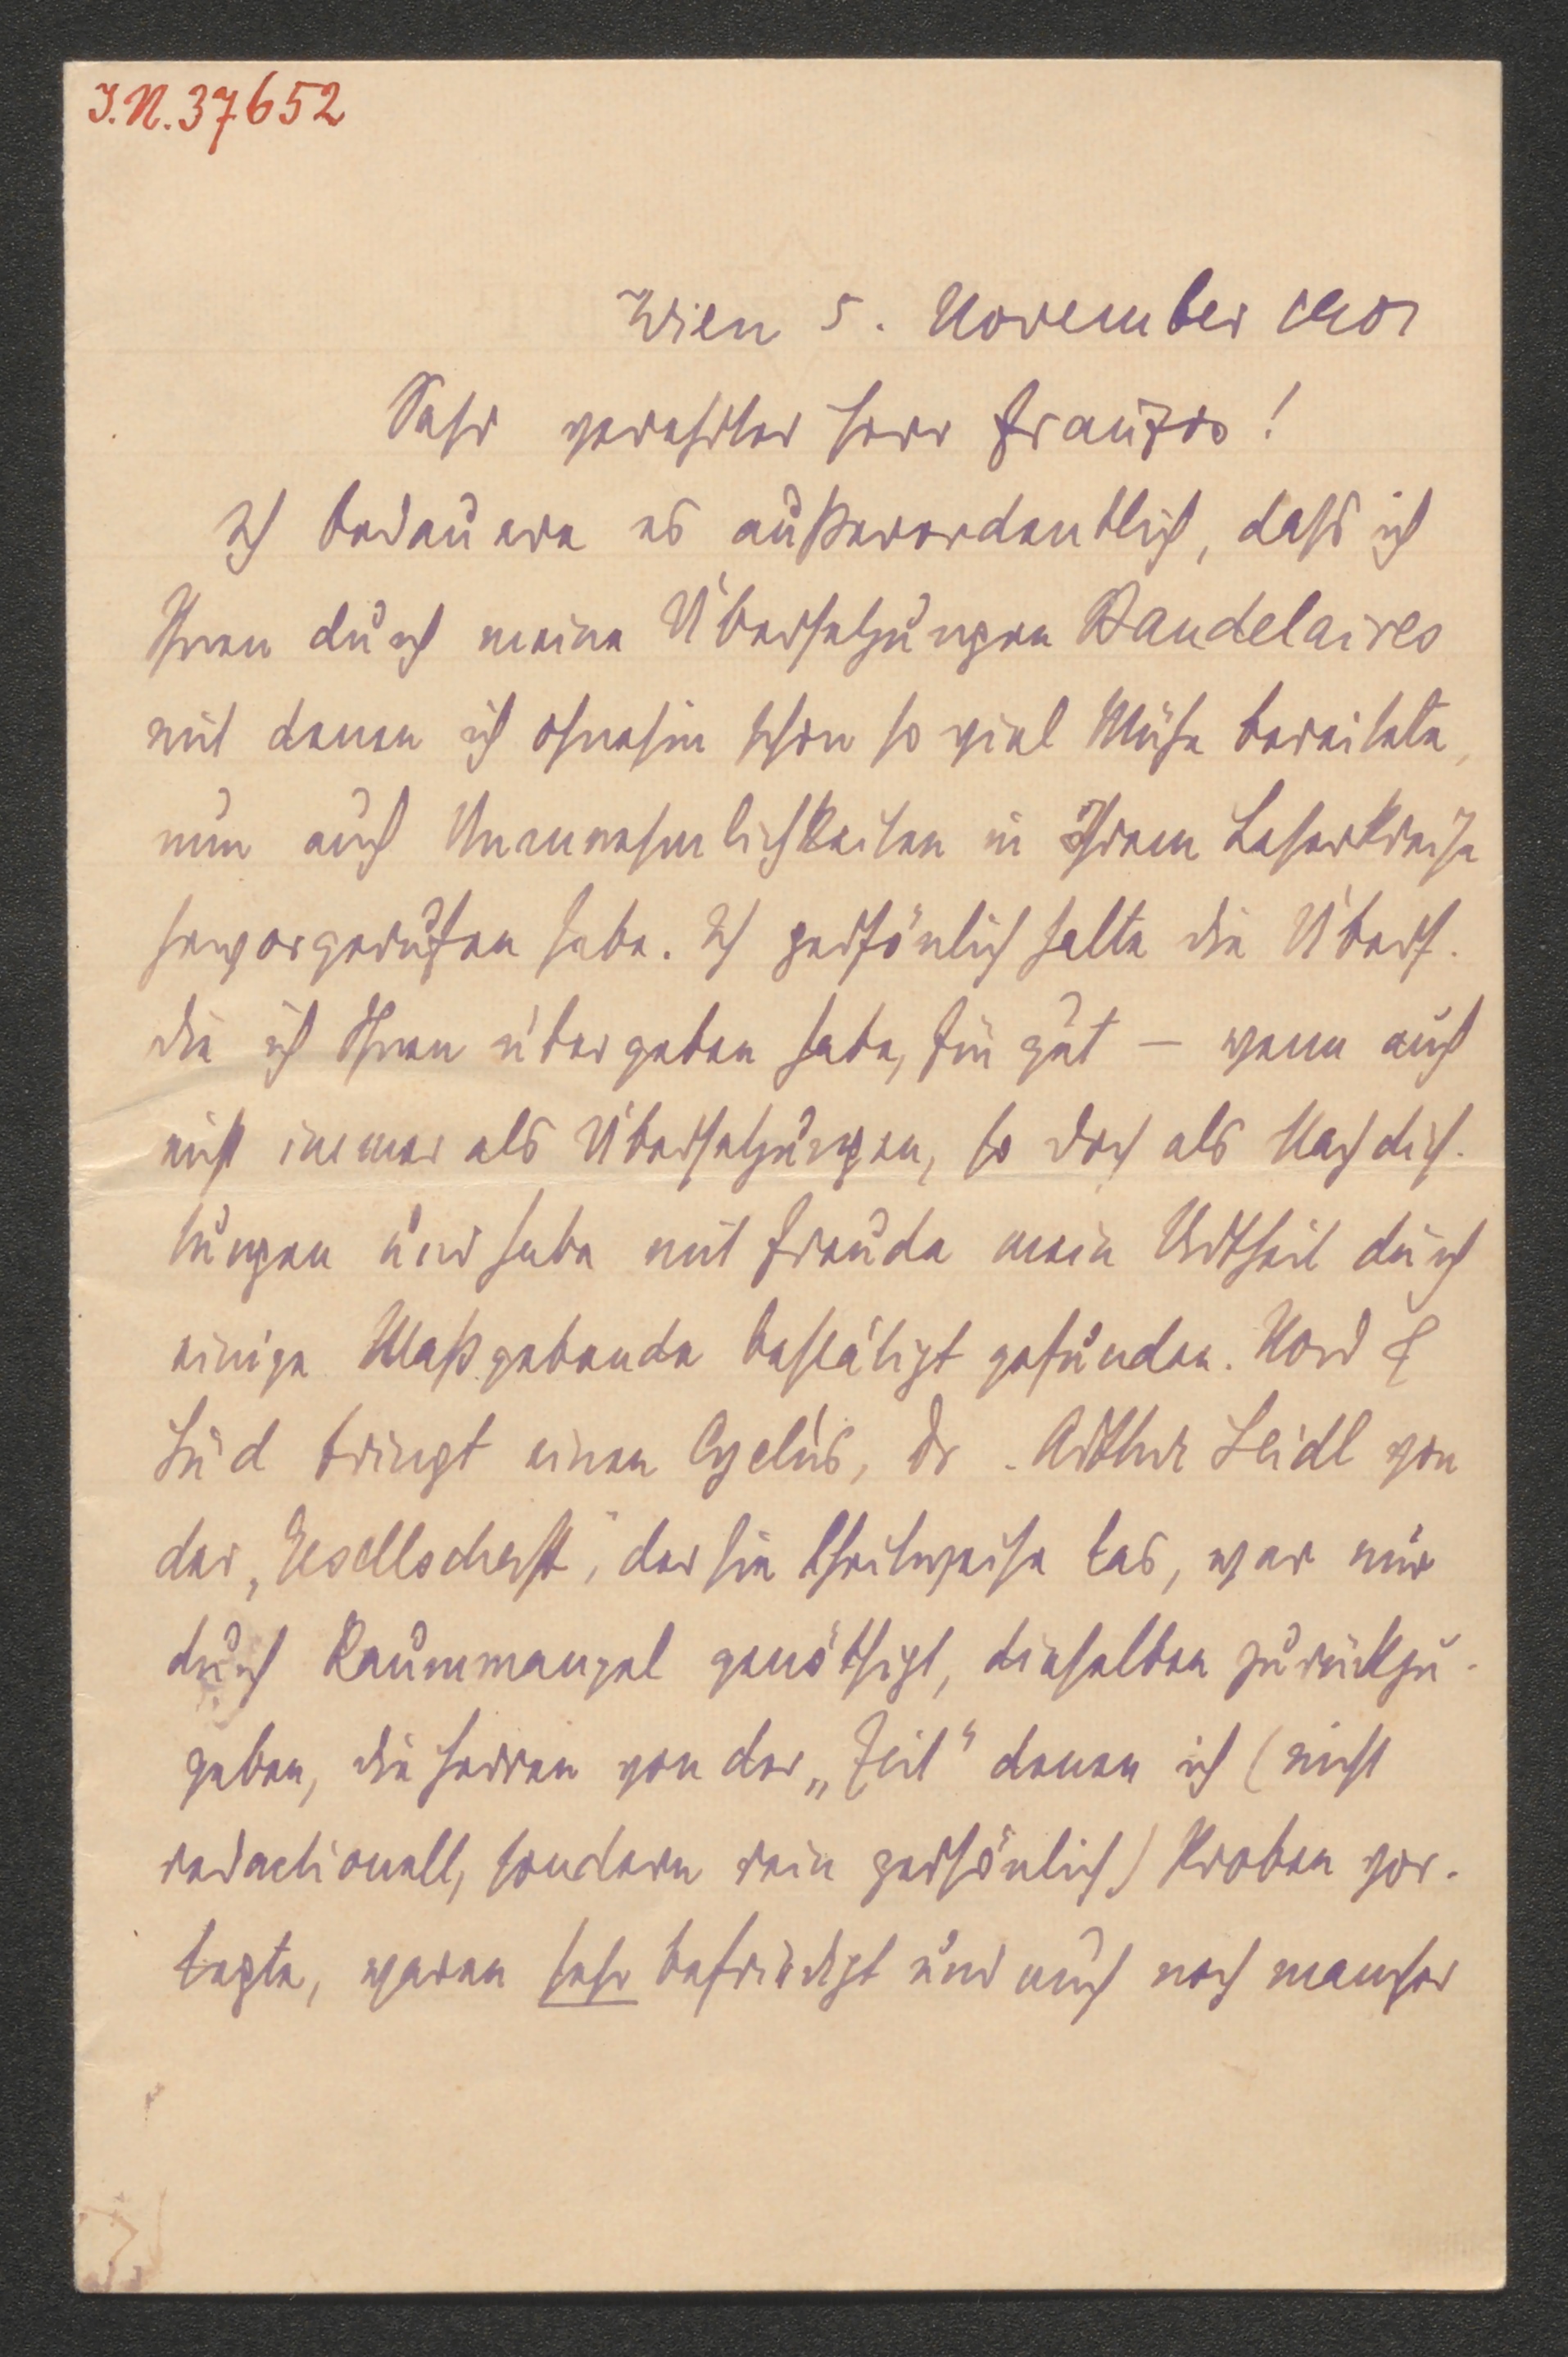 I.N. 37652
Wien 5. November 1901
Sehr verehrter Herr Franzos!
Ich bedauere es außerordentlich, dass ich
Ihnen durch meine Übersetzungen Baudelaires
mit denen ich ohnehin schon so viel Mühe bereitete,
nun auch Unannehmlichkeiten in Ihrem Leserkreise
hervorgerufen habe. Ich persönlich halte die Übers.
die ich Ihnen übergeben habe, für gut – wenn auch
nicht immer als Übersetzungen, so doch als Nachdich-
tungen und habe mit Freude mein Urtheil durch
einige Maßgebende bestätigt gefunden. Nord &
Süd bringt einen Cyclus, Dr. Arthur Seidl von
der „Gesellschaft“, der sie theilweise las, war nur
durch Raummangel genöthigt, dieselben zurückzu-
geben, die Herren von der „Zeit“ denen ich (nicht
redactionell, sondern rein persönlich) Proben vor-
legte, waren sehr befriedigt und auch noch mancher